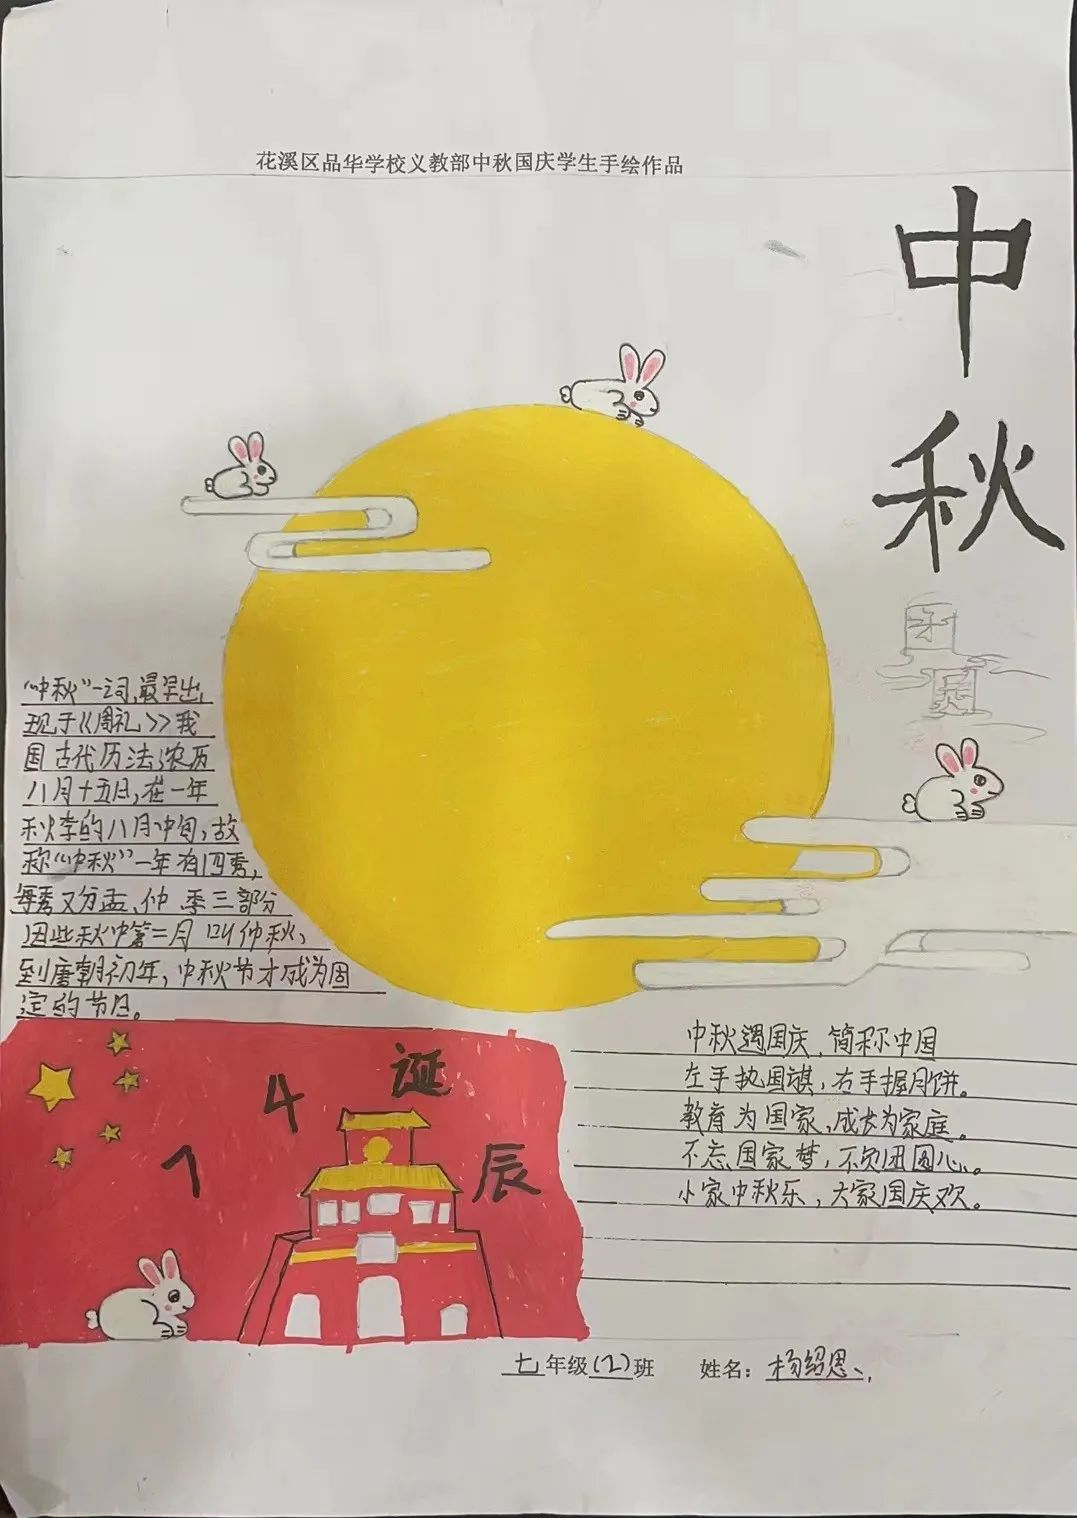 花溪区品华学校义教部中秋国庆学生手绘作品
中
秋
“中秋”一词,最早出
现于《周礼》我
国古代历法,农历
八月十五日,在一年
秋季的八月中旬,故
称“中秋”一年有四季,
每季又分孟、仲 季三部分
因此秋中第二月叫仲秋,
到唐朝初年,中秋节才成为固
定的节日。
74
诞
辰
中秋遇国庆,简称中国
左手执国旗,右手握月饼。
教育为国家,成长为家庭。
不忘国家梦,不负团圆心。
小家中秋乐,大家国庆欢。
七年级(2)班 姓名:杨绍恩